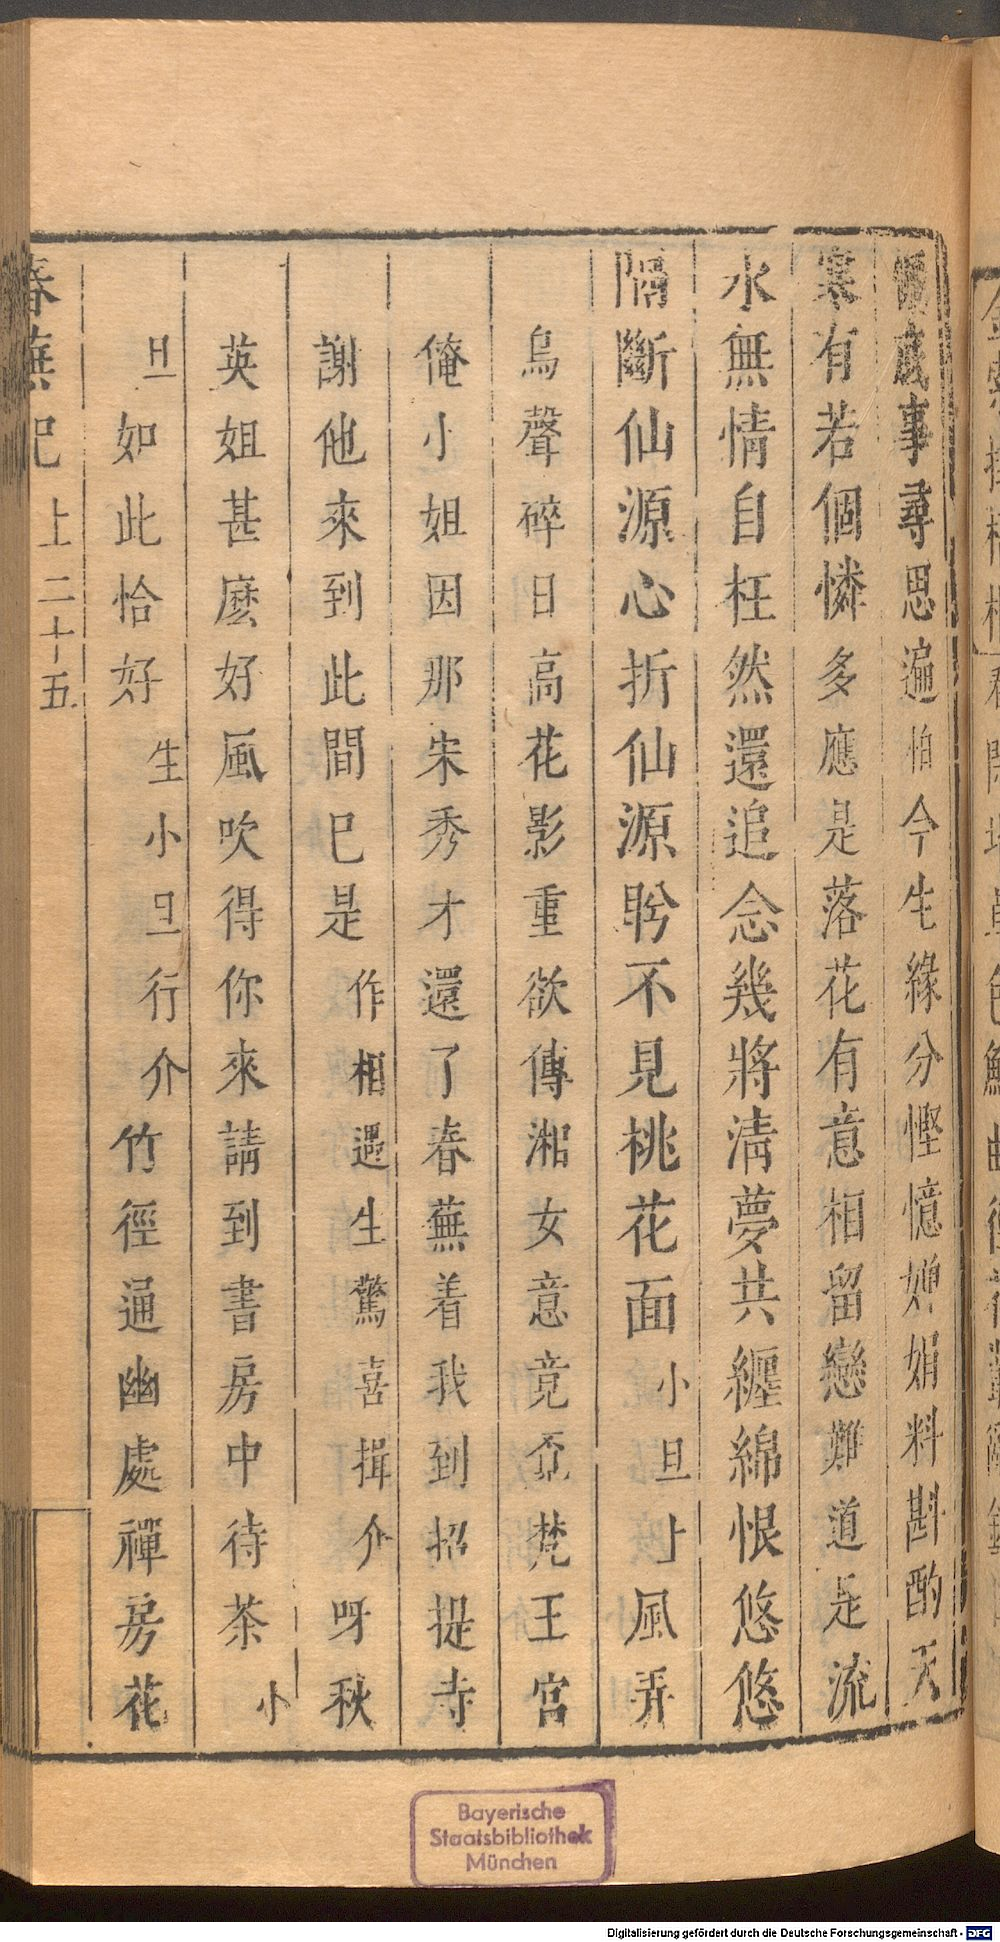 成事尋思遍怕今生緣分慳憶嬋娟料斟酌天
寒有若個憐多應是落花有意相留戀難道是流
水無情自枉然還追念幾將清夢共纏綿恨悠悠
隔斷仙源心折仙源盻不見桃花面小旦上風弄
烏聲碎日高花影重欲傳湘女意竟奔梵王宮
俺小姐因那宋秀才還了春蕪着我到招提寺
謝他來到此間已是作相遇生驚喜揖介呀秋
英姐甚麽好風吹得你來請到書房中待茶小
旦如此恰好生小旦行介竹徑通幽處禪房花
春蕪記 上 二十五
Bayerische
Staatsbibliothek
München
Digitalisierung gefördert durch die Deutsche Forschungsgemeinschaft - DFG